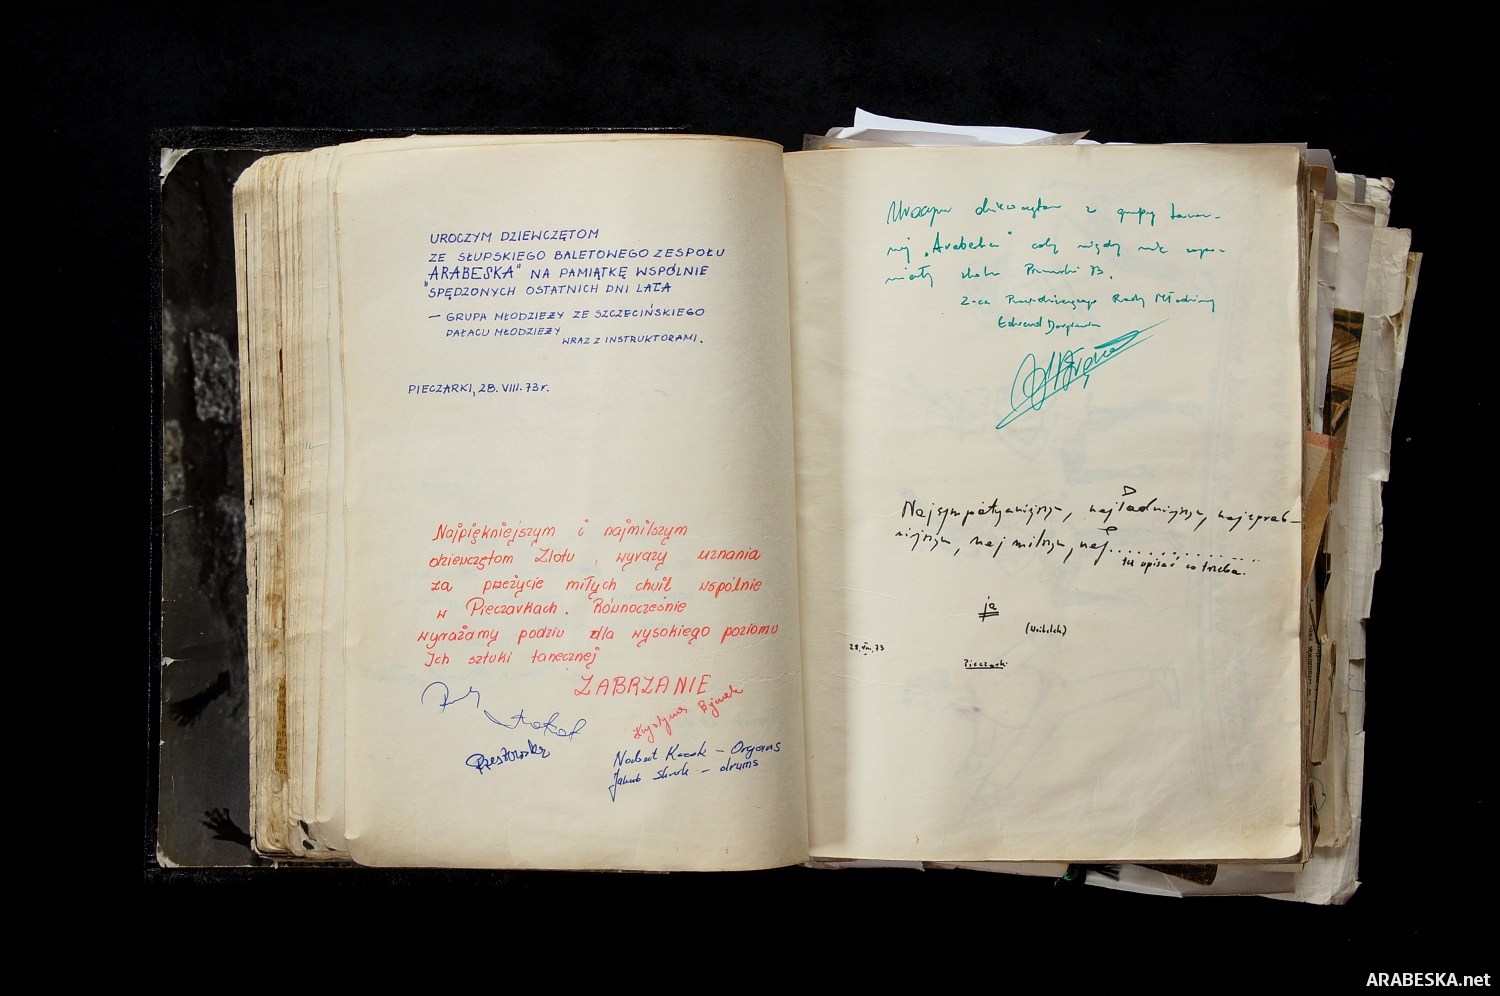 UROCZYM DZIEWCZĘTOM
ZE SŁUPSKIEGO BALETOWEGO ZESPOŁU
"ARABESKA" NA PAMIĄTKĘ WSPÓLNIE
SPĘDZONYCH OSTATNICH DNI LATA
— GRUPA MŁODZIEŻY ZE SZCZECIŃSKIEGO
PAŁACU MŁODZIEŻY
WRAZ Z INSTRUKTORAMI.
PIECZARKI, 28. VIII. 73 r.
Najpiękniejszym i najmilszym
dziewczętom Zlotu, wyrazy uznania
za przeżycie miłych chwil wspólnie
w Pieczarkach. Równocześnie
wyrażamy podziw dla wysokiego poziomu
Ich sztuki tanecznej
ZABRZANIE
Krystyna
Norbert – Organs
Jakub – drums
Uroczym dziewczętom z grupy tanecz-
nej „Arabeska" by nigdy nie
Z-ca Przewodniczącego Rady Młodzieży
Edward
Najsympatyczniejszym, najładniejszym, najzgrab-
niejszym, najmilszym, naj..............
tu wpisać co trzeba.
ja
28. VIII. 73
Pieczarki
ARABESKA.net